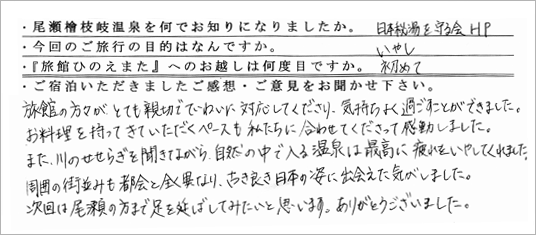 ・尾瀬檜枝岐温泉を何でお知りになりましたか。 日本秘湯を守る会 HP
・今回のご旅行の目的はなんですか。 いやし
・『旅館ひのえまた』へのお越しは何度目ですか。 初めて
・ご宿泊いただきましたご感想・ご意見をお聞かせ下さい。
旅館の方々が、とても親切でていねいに対応してくださり、気持ちよく過ごすことができました。
お料理を持ってきていただくペースも私たちに合わせてくださって感動しました。
また、川のせせらぎを聞きながら、自然の中で入る温泉は最高に疲れをいやしてくれました。
周囲の街並みも都会と全く異なり、古き良き日本の姿に出会えた気がしました。
次回は尾瀬の方まで足を延ばしてみたいと思います。ありがとうございました。